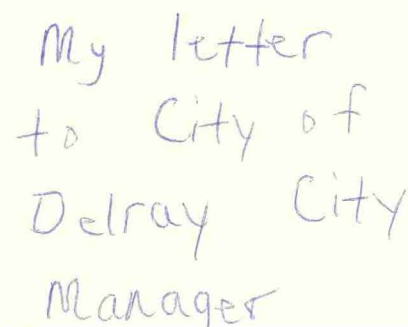 My letter
to City of
Delray City
Manager